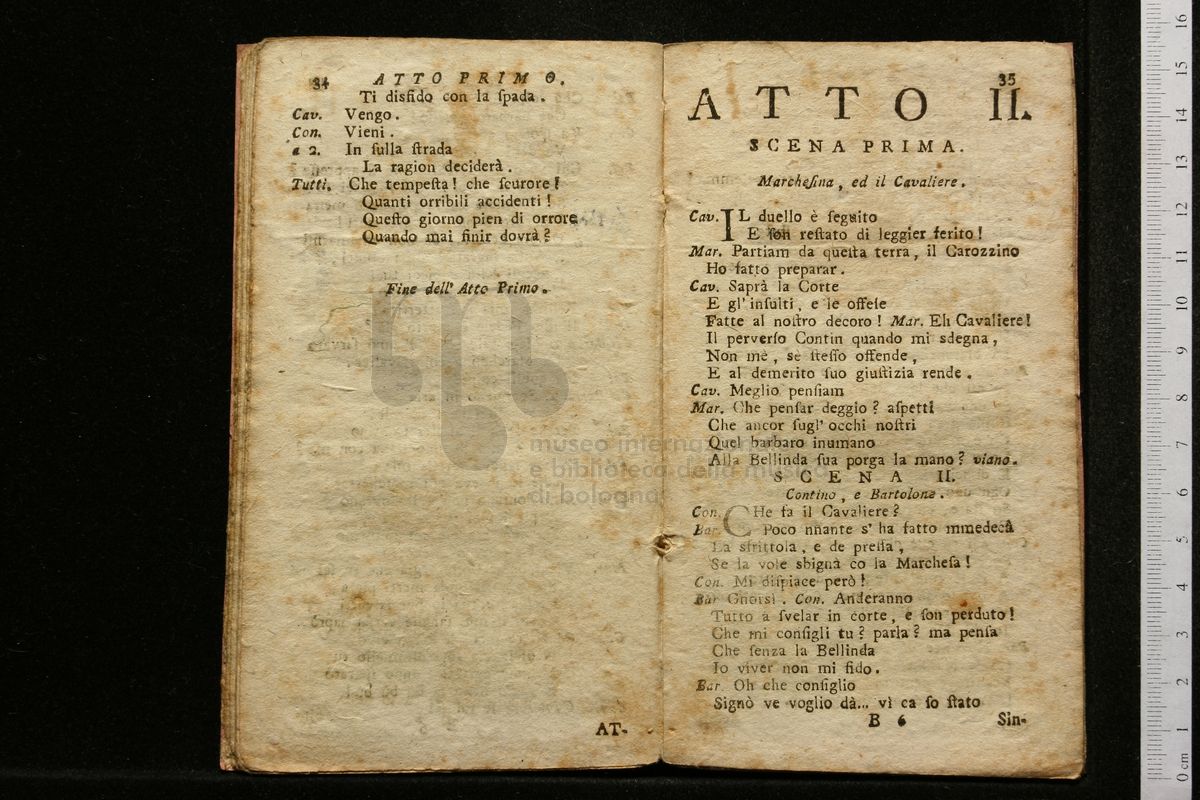 34 ATTO PRIMO.
Ti disfido con la ſpada.
Cav. Vengo.
Con. Vieni.
a 2. In ſulla ſtrada
La ragion deciderà.
Tutti. Che tempeſta! che ſcurore!
Quanti orribili accidenti!
Queſto giorno pien di orrore
Quando mai finir dovrà?
Fine dell' Atto Primo.
AT-
35
ATTO II.
SCENA PRIMA.
Marcheſina, ed il Cavaliere.
Cav. IL duello è ſeguito
E ſon reſtato di leggier ferito!
Mar. Partiam da queſta terra, il Carozzino
Ho fatto preparar.
Cav. Saprà la Corte
E gl' inſulti, e le offeſe
Fatte al noſtro decoro! Mar. Eh Cavaliere!
Il perverſo Contin quando mi sdegna,
Non me, se ſteſſo offende,
E al demerito ſuo giuſtizia rende.
Cav. Meglio penſiam
Mar. Che penſar deggio? aſpetti
Che ancor ſugl' occhi noſtri
Quel barbaro inumano
Alla Bellinda ſua porga la mano? viano.
SCENA II.
Contino, e Bartolone.
Con. CHe fa il Cavaliere?
Bar. Poco nnante s' ha fatto mmedecà
La sfrittola, e de preſſa,
Se la vole sbignà co la Marcheſa!
Con. Mi diſpiace però!
Bar Gnorsì. Con. Anderanno
Tutto a ſvelar in corte, e ſon perduto!
Che mi conſigli tu? parla? ma penſa
Che ſenza la Bellinda
Io viver non mi fido.
Bar. Oh che conſiglio
Signò ve voglio dà... vì ca ſo ſtato
B 6 Sin-
museo internaz
e biblioteca della museo
di bologna